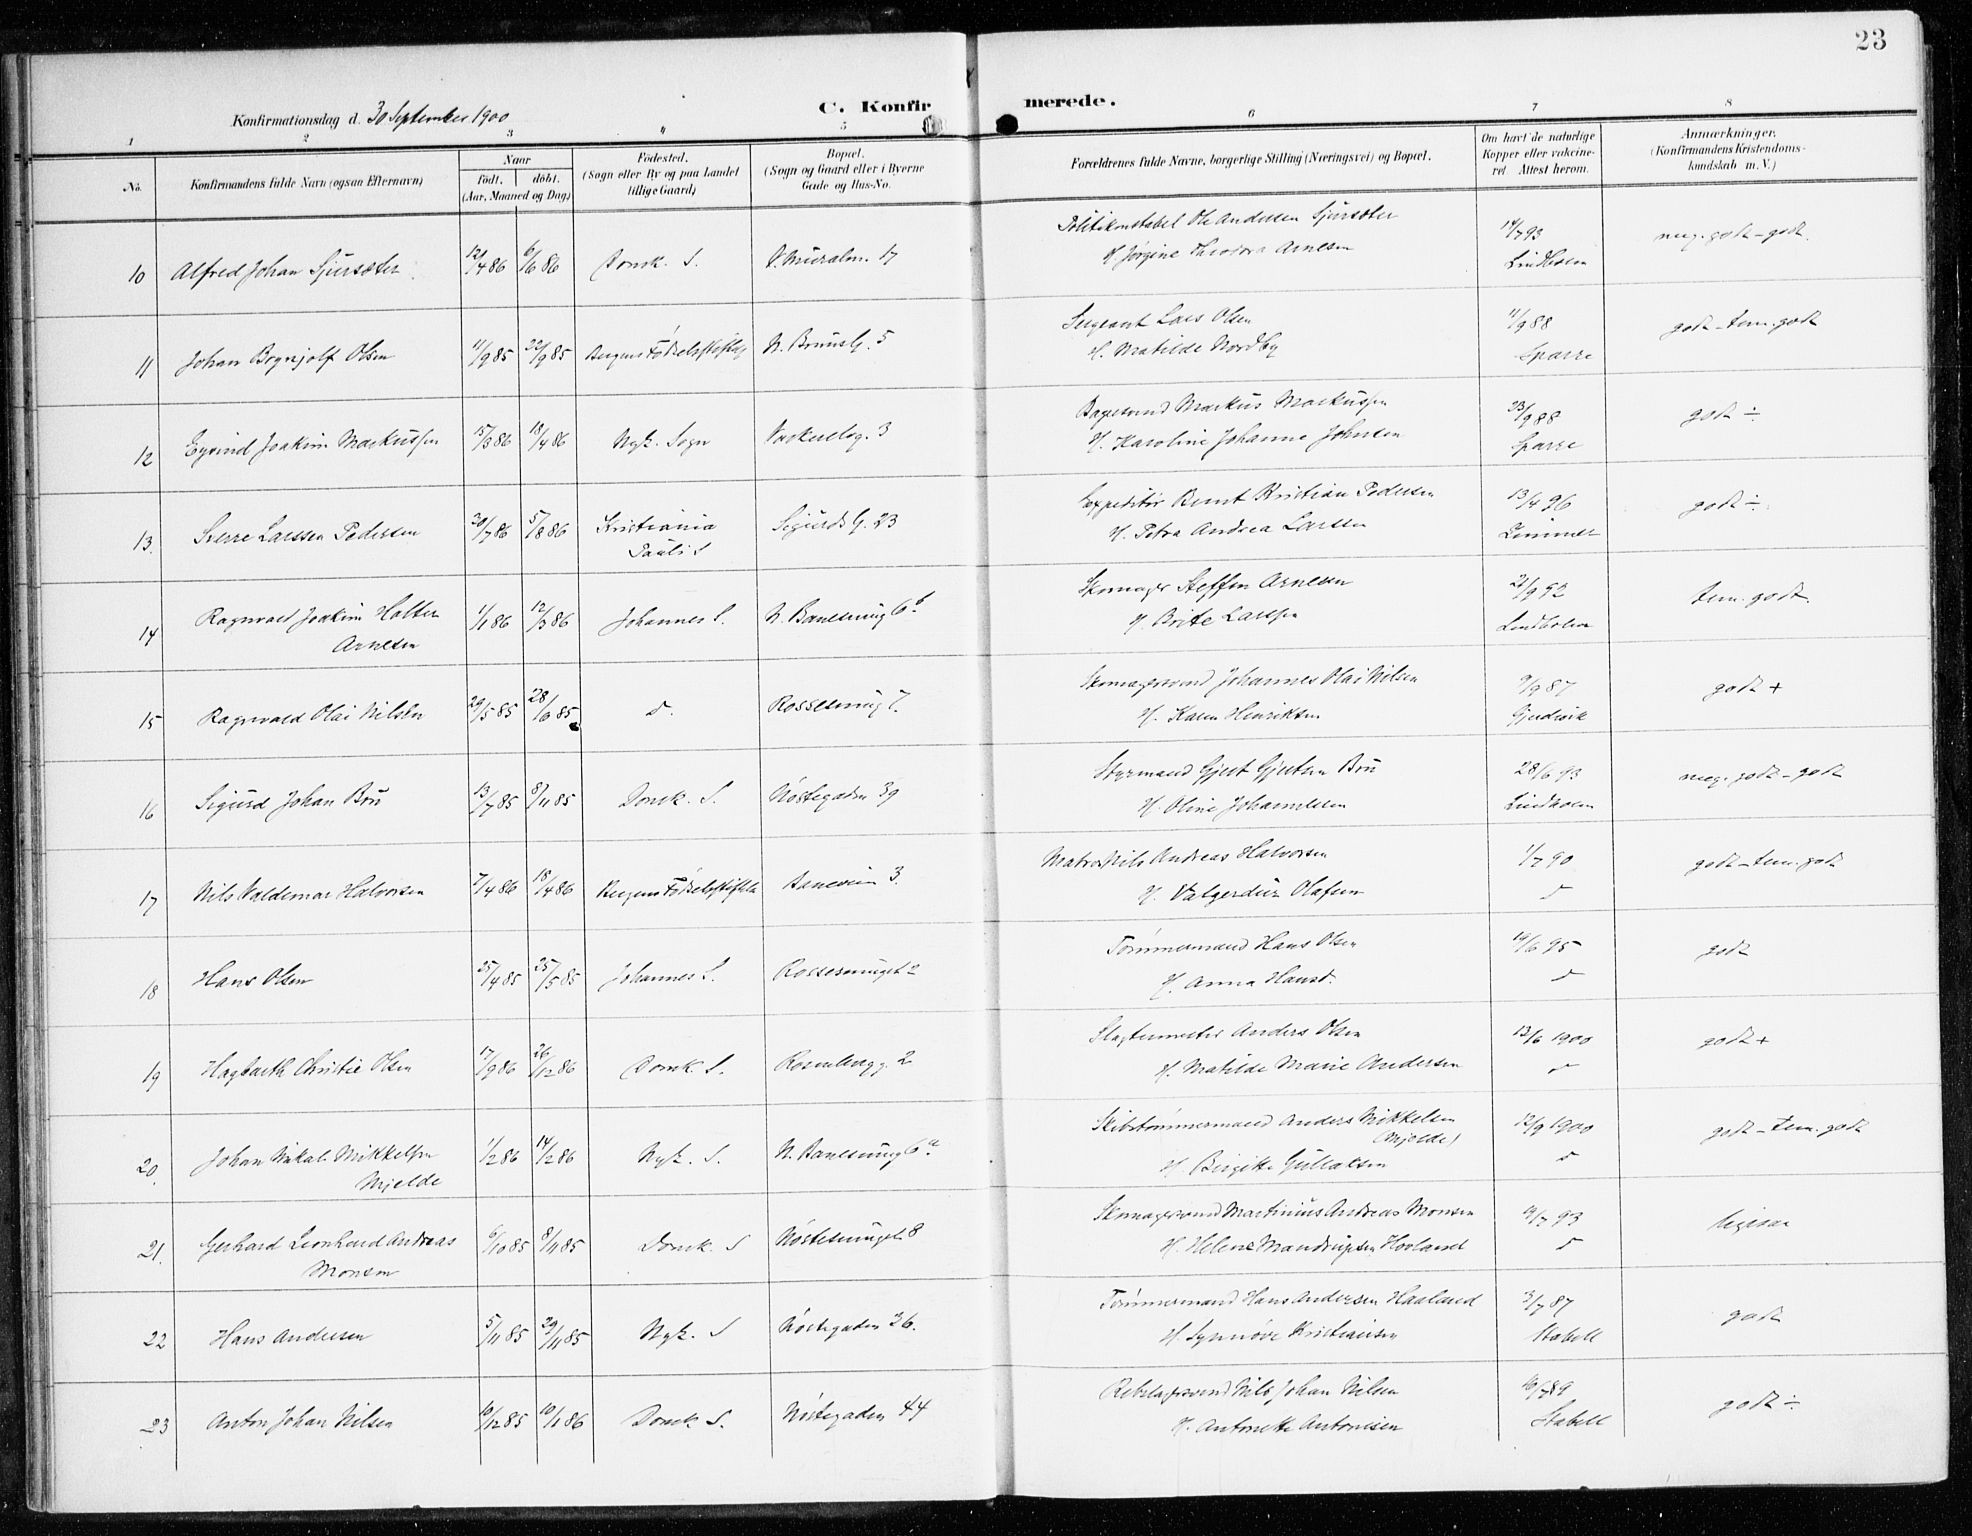 23
Konfirmationsdag d. 30 September 1900
C. Konfirmerede.
1 2 3 4 5 6 7 8
No. Konfirmandens fulde Navn (ogsaa Efternavn) Naar født, døbt. (Aar, Maaned og Dag) Fødested. (Sogn eller By og paa Landet tillige Gaard) Bopæl. (Sogn og Gaard eller i Byerne Gade og Hus-No. Forældrenes fulde Navne, borgerlige Stilling (Næringsvei) og Bopæl. Om havt de naturlige Kopper eller vakcineret. Attest herom. Anmærkninger. (Konfirmandens Kristendomskundskab m.V.)
10 Alfred Johan Sjursæter 12/4 86 6/6 86 Domk. S. 17 Politikonstabel Ole Andersen Sjursæter 14/7 93 meg. godt - godt.
H. Jørgine Theodora Arnesen Lindholm
11 Johan Brynjolf Olsen 11/9 85 22/9 85 Bergens Fødselsstiftelse N. Brunsg. 5 Sergeant Lars Olsen 11/9 88 godt - tem. godt
H. Matilde Nordby Sparre
12 Eyvind Joakim Markussen 15/3 86 18/4 86 Nyk. Sogn Vaskerelvg. 3 Bagersvend Markus Markussen 23/9 88 godt ÷
H. Karoline Johanne Johnsen Sparre
13. Sverre Larssen Pedersen 20/7 86 5/8 86 Kristiania Sigurds G. 23 Expeditør Bernt Kristian Pedersen 13/4 96 godt ÷
Pauli S H. Petra Andrea Larsen Zimmer
14 Ragnvald Joakim Holter 1/1 86 12/3 86 Johannes S. N. Banesmug 6b Skomager Steffen Arnesen 21/9 92 tem. godt.
Arnesen H. Brite Larssen Lindholm
15 Ragnvald Olai Nilsen 29/5 85 28/6 85 d. Rossesmug 7. Skomagersvend Johannes Olai Nilsen 9/9 87 godt +
H. Karen Henriksen Gjerdvik
16 Sigurd Johan Bru 13/7 85 8/11 85 Domk. S. Nøstegaden 39 Styrmand Gjert Gjertsen Bru 28/6 93 meg. godt - godt
H. Oline Johannesen Lindholm
17 Nils Valdemar Halvorsen 7/4 86 18/4 86 Bergens Fødselsstiftelse Baneveien 3. Matros Nils Andreas Halvorsen 1/7 90 godt - tem. godt
H. Valgerdur Olafsen d
18 Hans Olsen 25/4 85 25/5 85 Johannes S. Rossesmuget 2 Tømmermand Hans Olsen 19/6 95 godt
H. Anna Hansd. d
19 Hagbarth Christie Olsen 17/9 86 26/12 86 Domk. S. Rosenbergg. 2 Slagtermester Anders Olsen 13/6 1900 godt +
H. Matilde Marie Andersen d
20. Johan Mikal Mikkelsen 1/2 86 14/2 86 Nyk. S. N. Banesmug 6a Skibstømmermand Anders Mikkelsen 12/9 1900 godt - tem. godt
Mjelde (Mjelde)
H. Birgitte Gullaksen d
21. Gerhard Leonhard Andreas 6/10 85 8/11 85 Domk. S Nøstesmuget 8 Skomagersvend Martinius Andreas Monsen 19/7 93
Monsen H. Helene Mandrupsen Hovland d
22 Hans Andersen 5/11 85 29/11 85 Nyk. S Nøstegaden 36. Tømmermand Hans Andersen Haaland 3/7 87 godt
H. Synnøve Kristiansen Stabell
23 Anton Johan Nilsen 10/12 85 10/1 86 Domk S. Nøstegaden 44 Rebslagersvend Nils Johan Nilsen 16/7 89 godt ÷
H. Antonette Antonisen Stabell